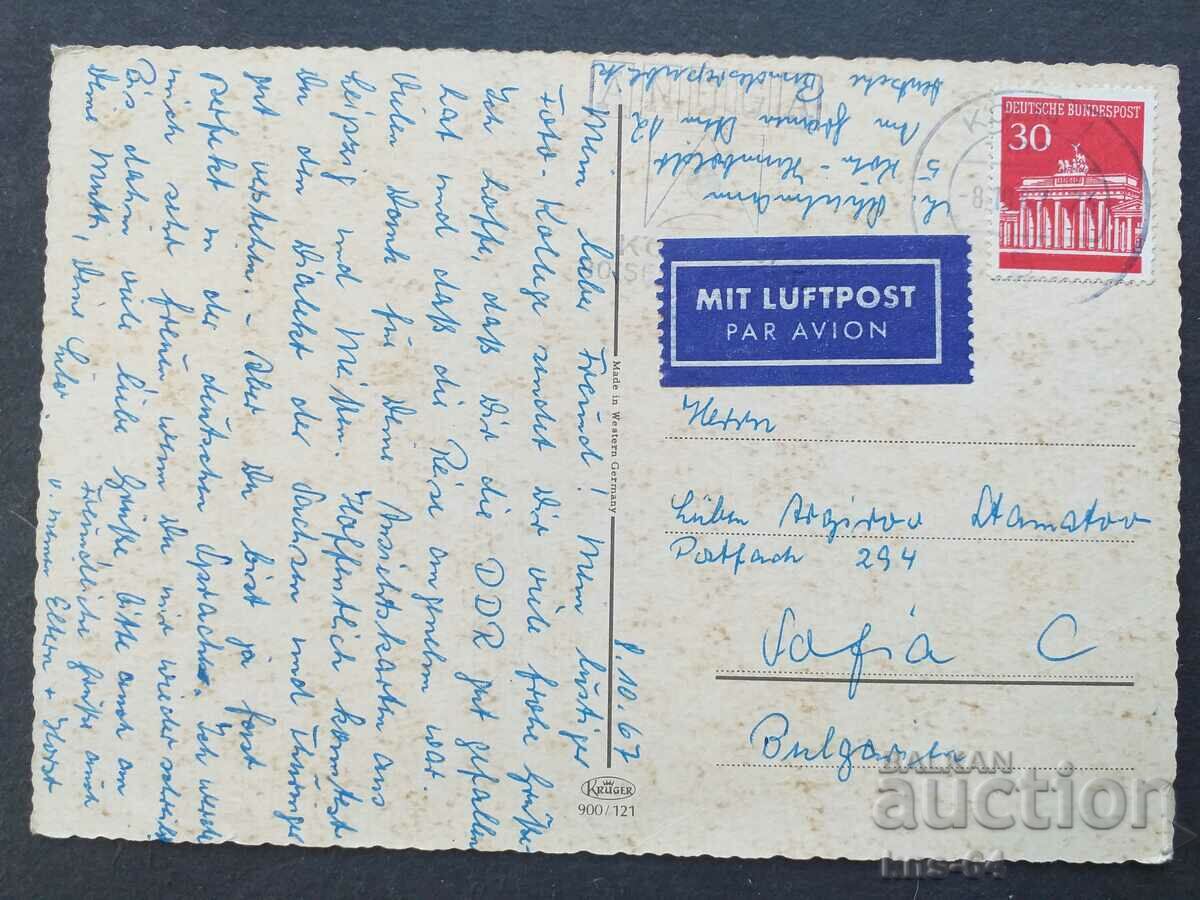 8.10.67
Mein lieber Freund! Mein lustiger
Foto-Kollege sendet Dir viele frohe Grüße.
Ich hoffe, daß Dir die DDR gut gefallen
hat und daß die Reise angenehm war.
Vielen Dank für Deine Ansichtskarten aus
Leipzig und Meißen. Hoffentlich konntest
Du den Dialekt der Sachsen und Thüringer
gut verstehen. - Aber Du bist ja fast
perfekt in der deutschen Sprache. Ich werde
mich sehr freuen wenn Du mir wieder schreibst
Bis dahin viele liebe Grüße bitte auch an
Deine Mutti, Deine
Freundliche Grüße auch
v. meinen Eltern + Horst
5 Köln-Humboldt
Am Grünen 12
Deutsche Bundesrepublik
DEUTSCHE BUNDESPOST
30
MIT LUFTPOST
PAR AVION
Made in Western Germany
KRÜGER
900/121
Herrn
Lüben Argirov Stamatov
Postfach 294
Sofia C
Bulgarien
BALKAN
auction
kns-64